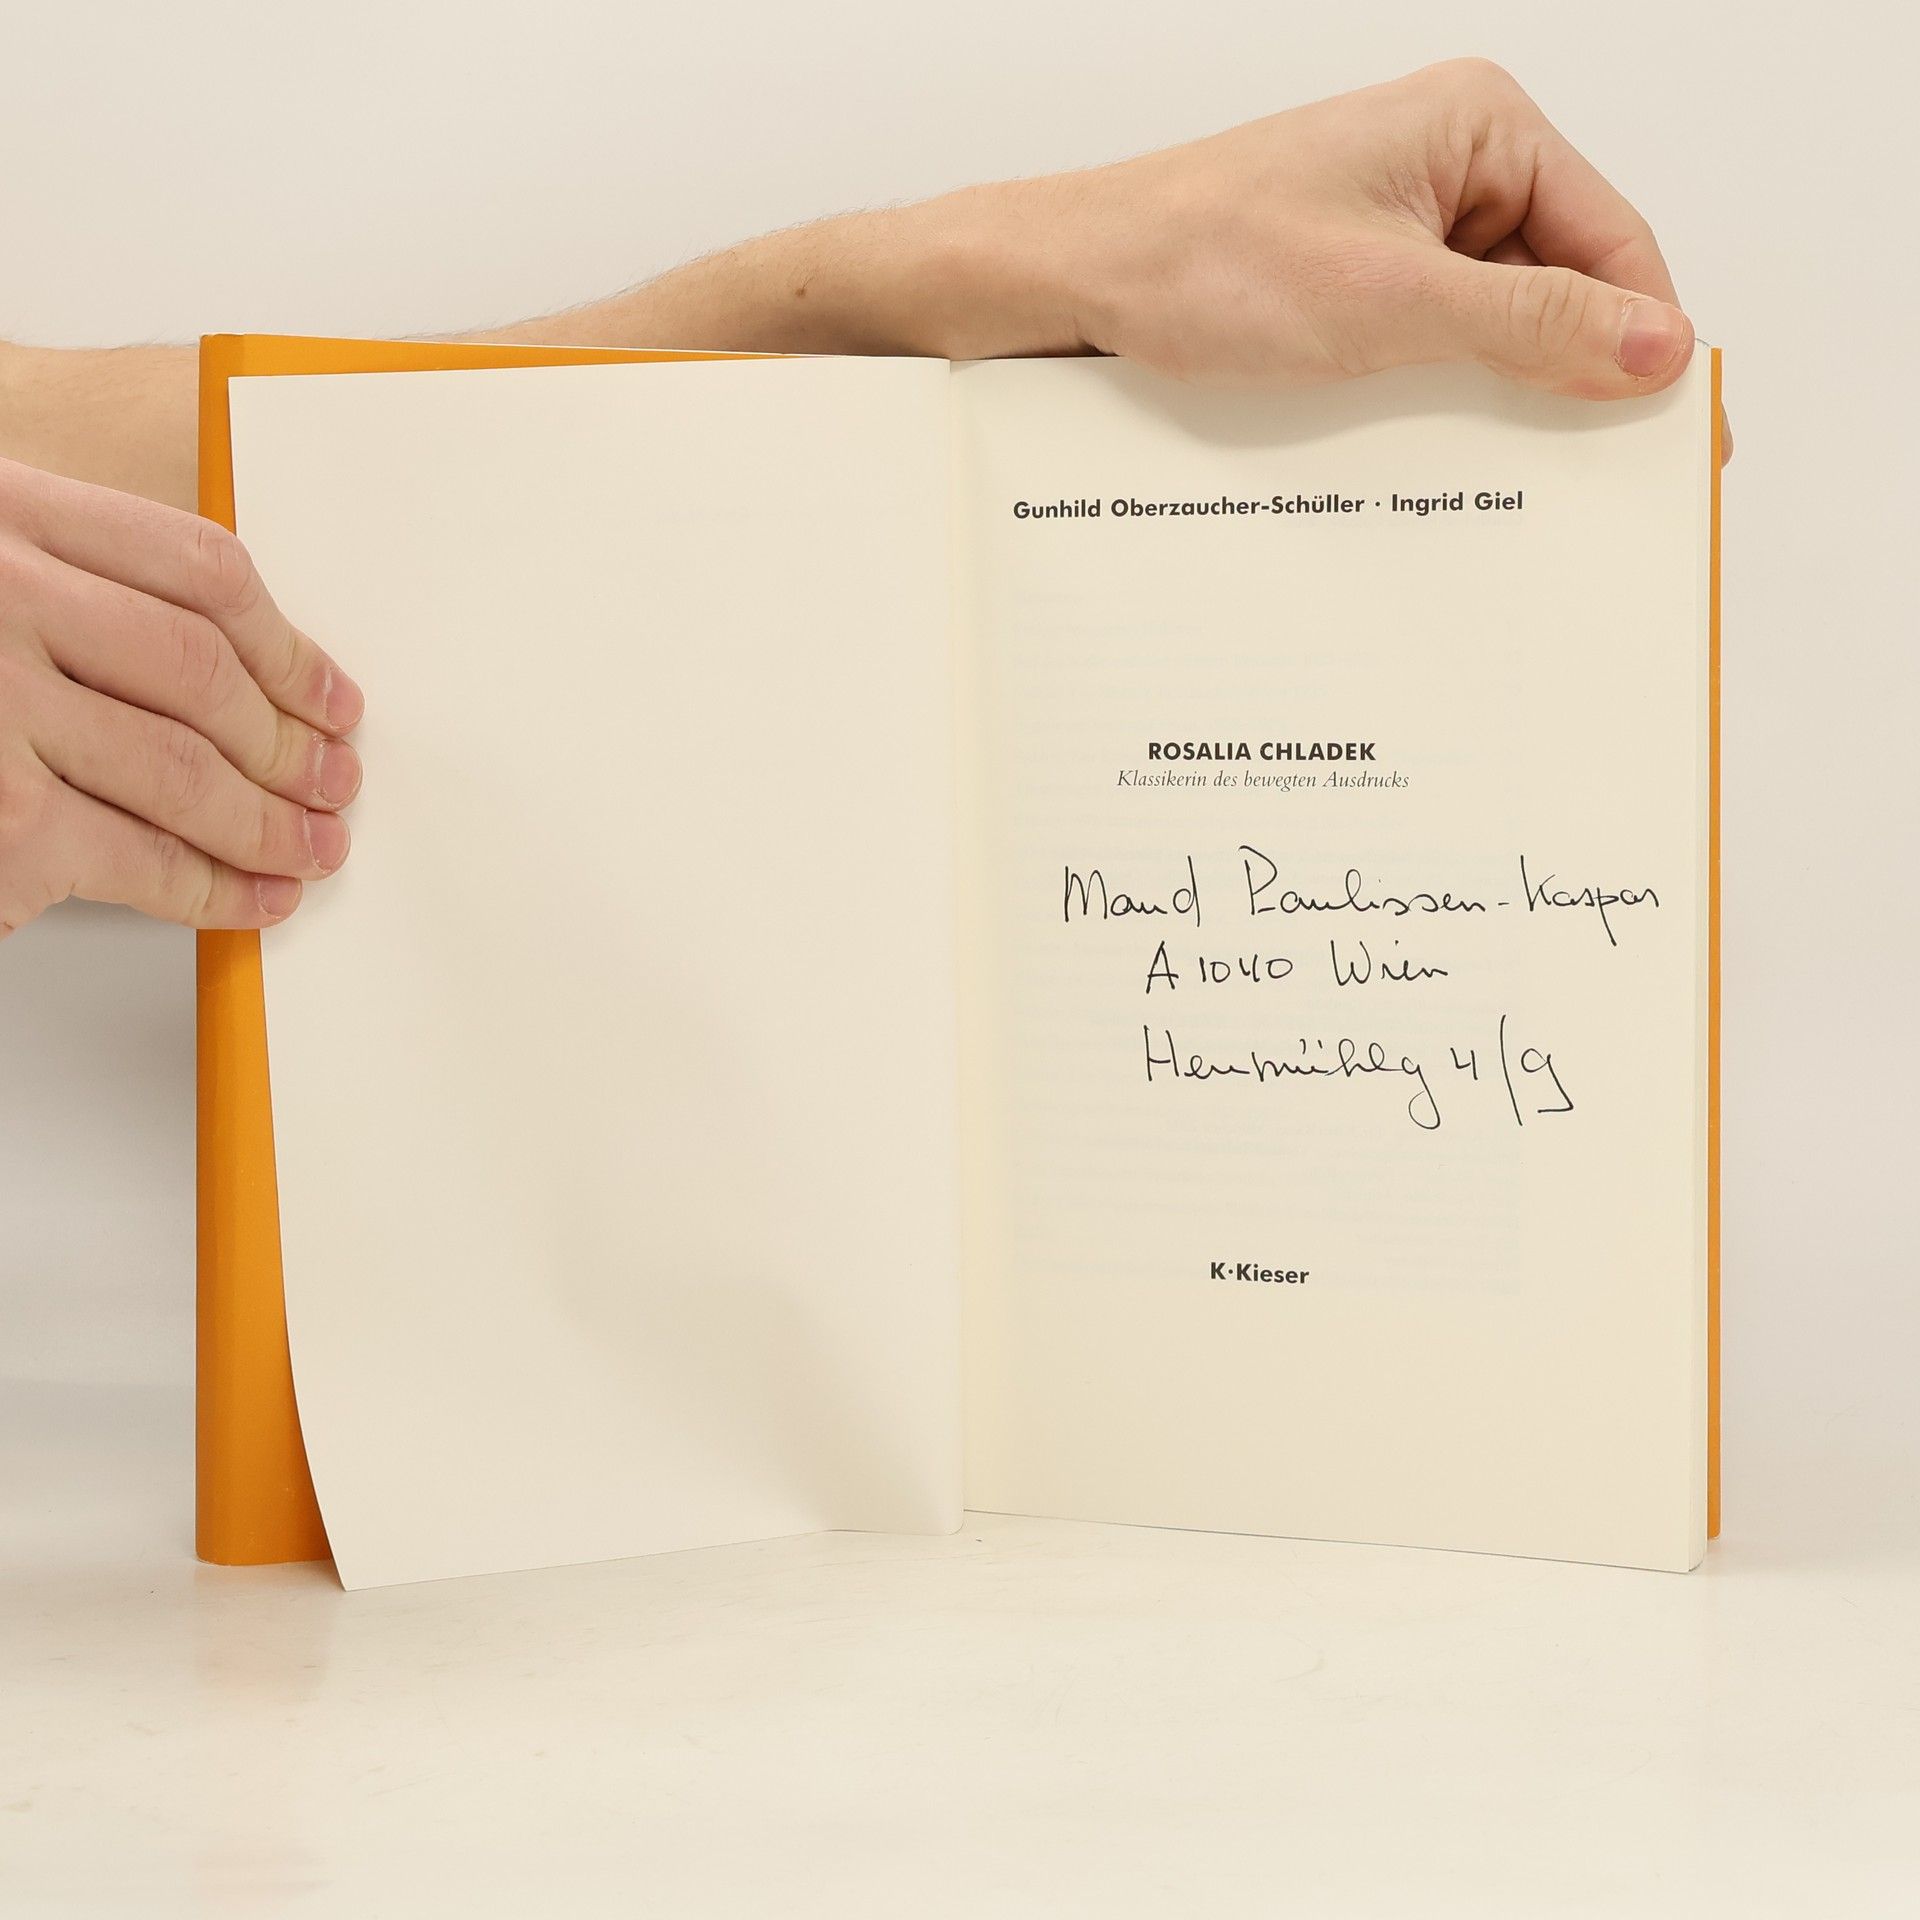 Gunhild Oberzaucher-Schüller · Ingrid Giel
ROSALIA CHLADEK
Klassikerin des bewegten Ausdrucks
Maud Paulissen-Kaspar
A 1040 Wien
Heumühlg 4/9
K·Kieser